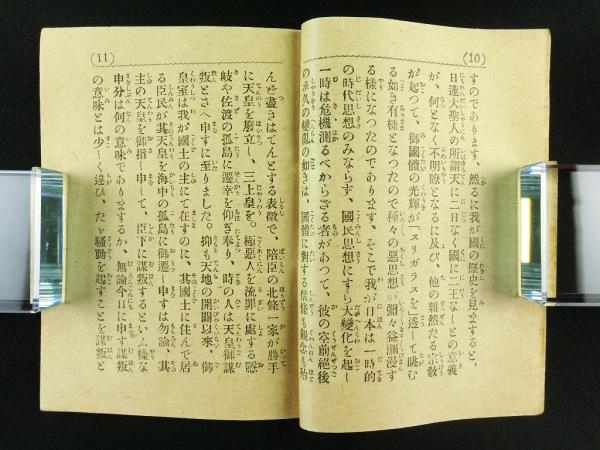 (10)
すのであります、然るに我が國の歷史を見ますると、
日蓮大聖人の所謂天に二日なく國に二王なしとの意義
が、何となく不明瞭となるに及び、他の雜然たる宗敎
が起つて、御國體の光輝が「スリガラスを」透して眺む
る如き有樣となつたので種々の惡思想が彌々益瀰漫す
る樣になつたのであります、そこで我が日本は一時的
の時代思想のみならず、國民思想にすら大變化を起し
一時は危機測るべからざる者があつて、彼の空前絕後
の承久の變亂の如きは、國體に對する信條も觀念も殆
(11)
んど盡きはてんとする表徵で、陪臣の北條一家が勝手
に天皇を廢立し、三上皇を。極惡人を流罪に處する隱
岐や佐渡の孤島に遷幸を仰ぎ奉り、時の人は天皇御謀
叛とさへ申すに至りました。抑も天地の開闢以來、御
皇室は我が國土の主にて在すのに、其國土に住んで居
る臣民が其天皇を海中の孤島に御遷し申すは勿論、其
主の天皇を御指し申して、臣下に謀叛するといふ樣な
申分は何の意味でありますか、無論今日に申す謀叛
の意味とは少しく違ひ、たゞ騷動を起すことを謀叛と